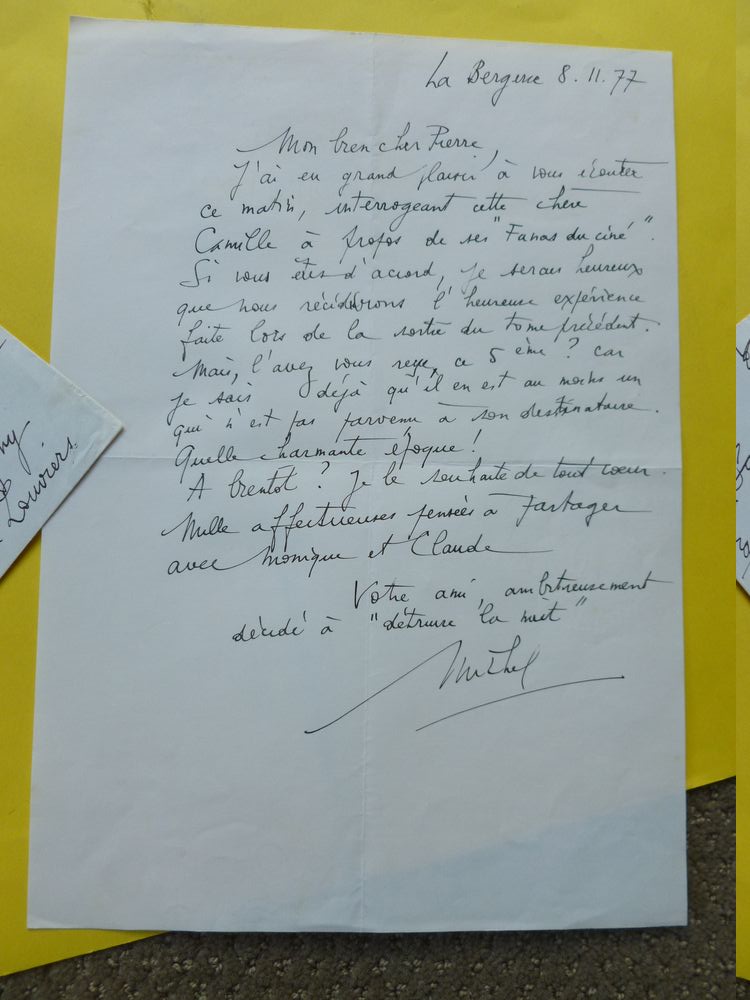 La Bergerie 8.11.77
Mon bien cher Pierre,
J'ai eu grand plaisir à vous écouter
ce matin, interrogeant cette chère
Camille à propos de ses "Fanas du ciné".
Si vous êtes d'accord, je serais heureux
que nous récidivions l'heureuse expérience
faite lors de la sortie du tome précédent.
Mais, l'avez vous reçu, ce 5 ème ? car
je sais déjà qu'il en est au moins un
qui n'est pas parvenu à son destinataire.
Quelle charmante époque !
A bientôt ? Je le souhaite de tout coeur.
Mille affectueuses pensées à partager
avec Monique et Claude
Votre ami, ambitieusement
décidé à "détruire la nuit"
Michel
ny
Louviers